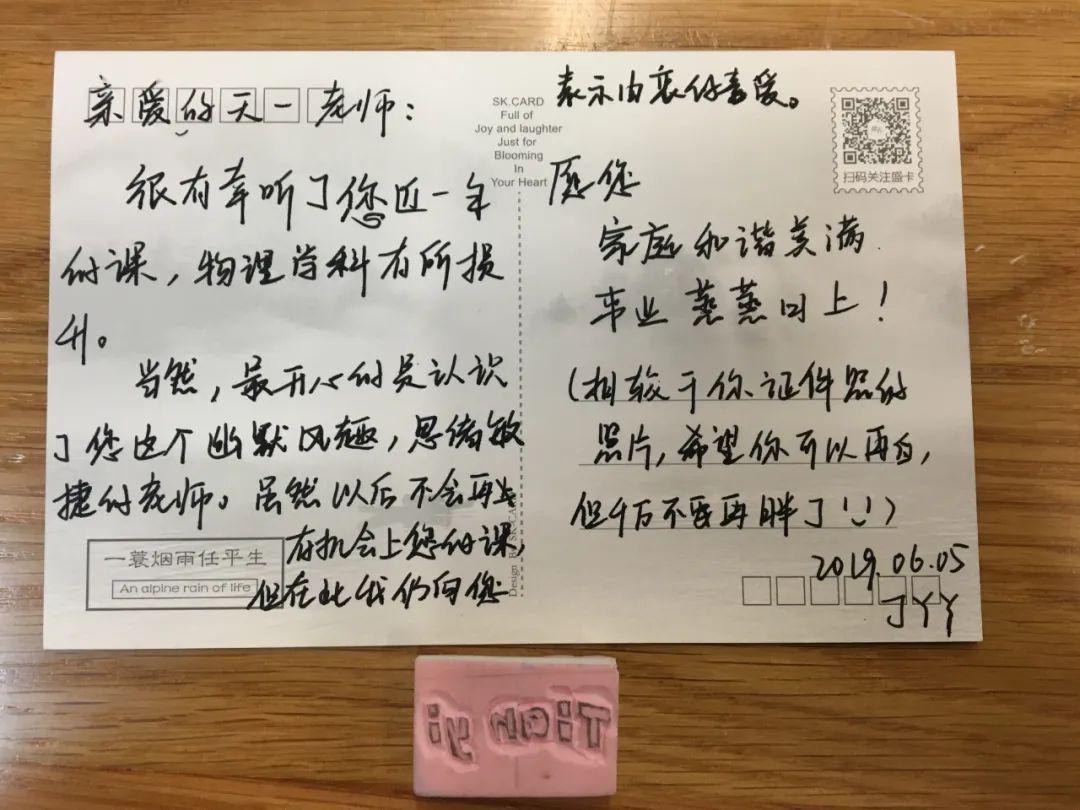 亲爱的天一老师：
很有幸听了您近一年
的课，物理学科有所损
升。
当然，最开心的是认识
了您这个幽默风趣，思绪敏
捷的老师。虽然以后不会再
有机会上您的课，
但在此我仍向您
一蓑烟雨任平生
An alpine rain of life
SK.CARD
Full of
Joy and laughter
Just for
Blooming
In
Your Heart
表示由衷的喜爱。
扫码关注盛卡
愿您
家庭和谐美满
事业蒸蒸日上！
（相较于你证件照的
照片，希望你可以再白，
但千万不要再胖了）
2019.06.05
JYY
Tian yi